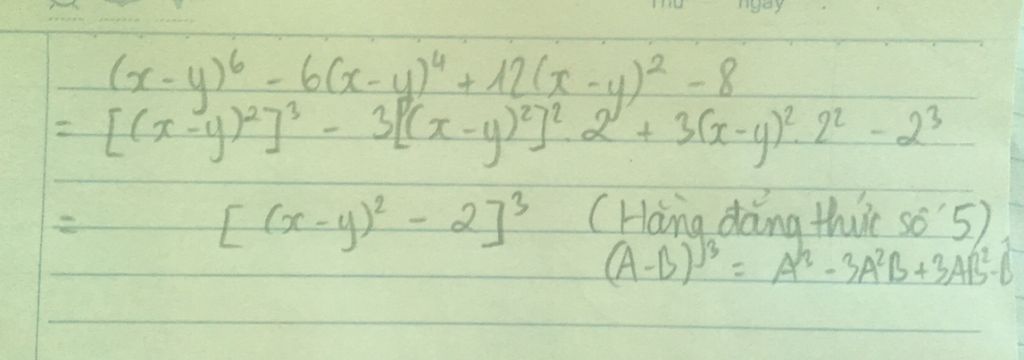 Thứ ngày
(x-y)⁶ - 6(x-y)⁴ + 12(x-y)² - 8
= [(x-y)²]³ - 3[(x-y)²]². 2 + 3(x-y)². 2² - 2³
= [(x-y)² - 2]³ (Hằng đẳng thức số 5)
(A-B)³ = A³ - 3A²B + 3AB² - B